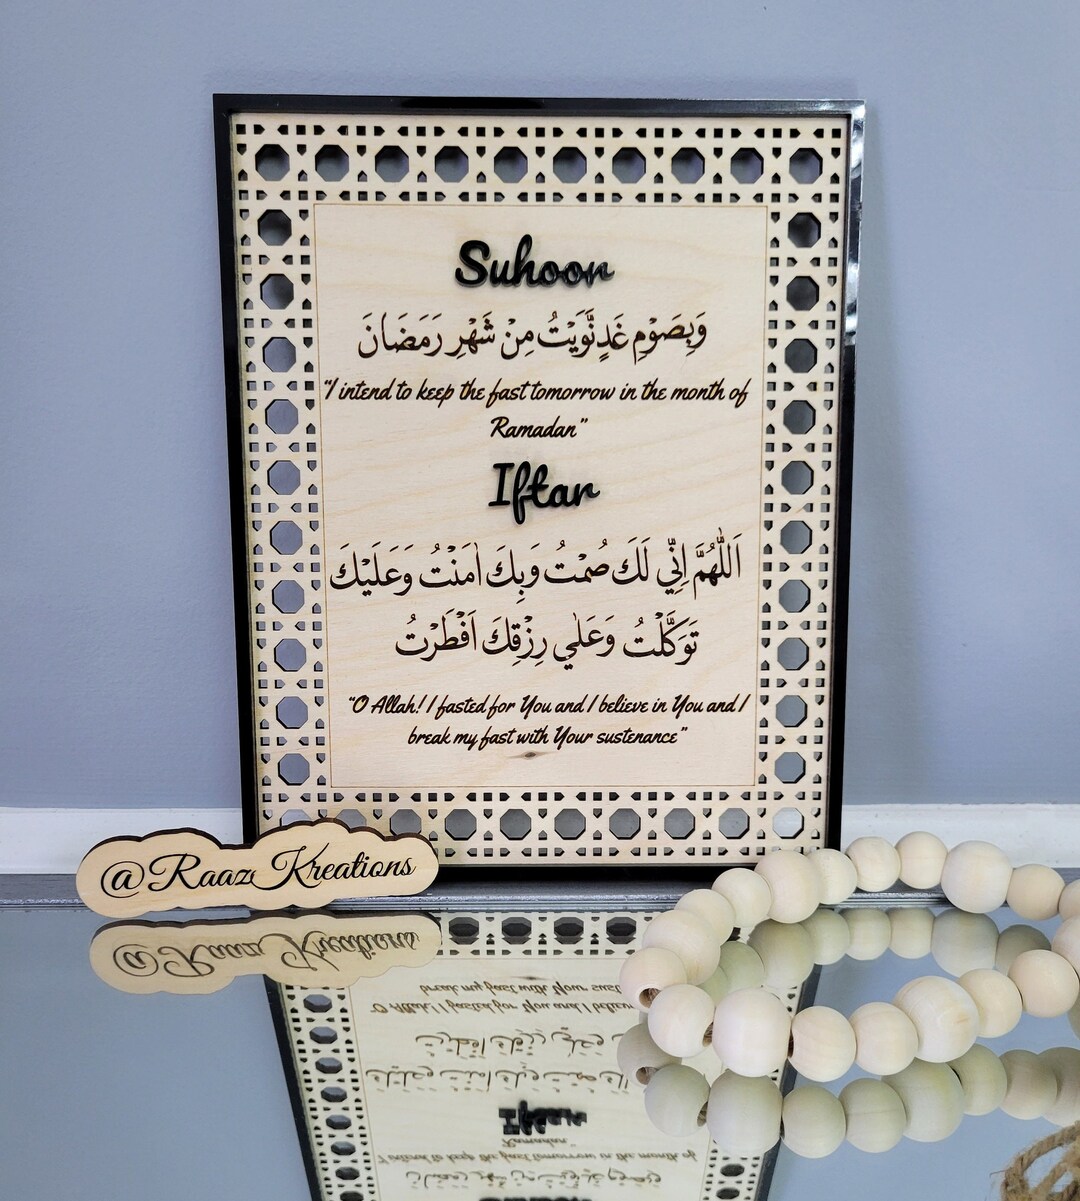 Suhoor
وَبِصَوْمِ غَدٍ نَّوَيْتُ مِنْ شَهْرِ رَمَضَانَ
"I intend to keep the fast tomorrow in the month of
Ramadan"
Iftar
اَللّٰهُمَّ اِنِّي لَكَ صُمْتُ وَبِكَ اٰمَنْتُ وَعَلَيْكَ
تَوَكَّلْتُ وَعَلٰي رِزْقِكَ اَفْطَرْتُ
"O Allah! I fasted for You and I believe in You and I
break my fast with Your sustenance"
@RaazKreations